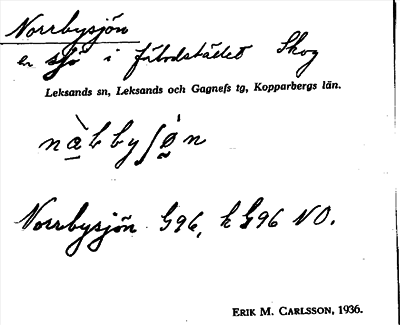 Norrbysjön
en sjö i fäbodstället Skog
Leksands sn, Leksands och Gagnefs tg, Kopparbergs län.
nàbbyʃø̀n
Norrbysjön G96, k G96 NO.
ERIK M. CARLSSON, 1936.